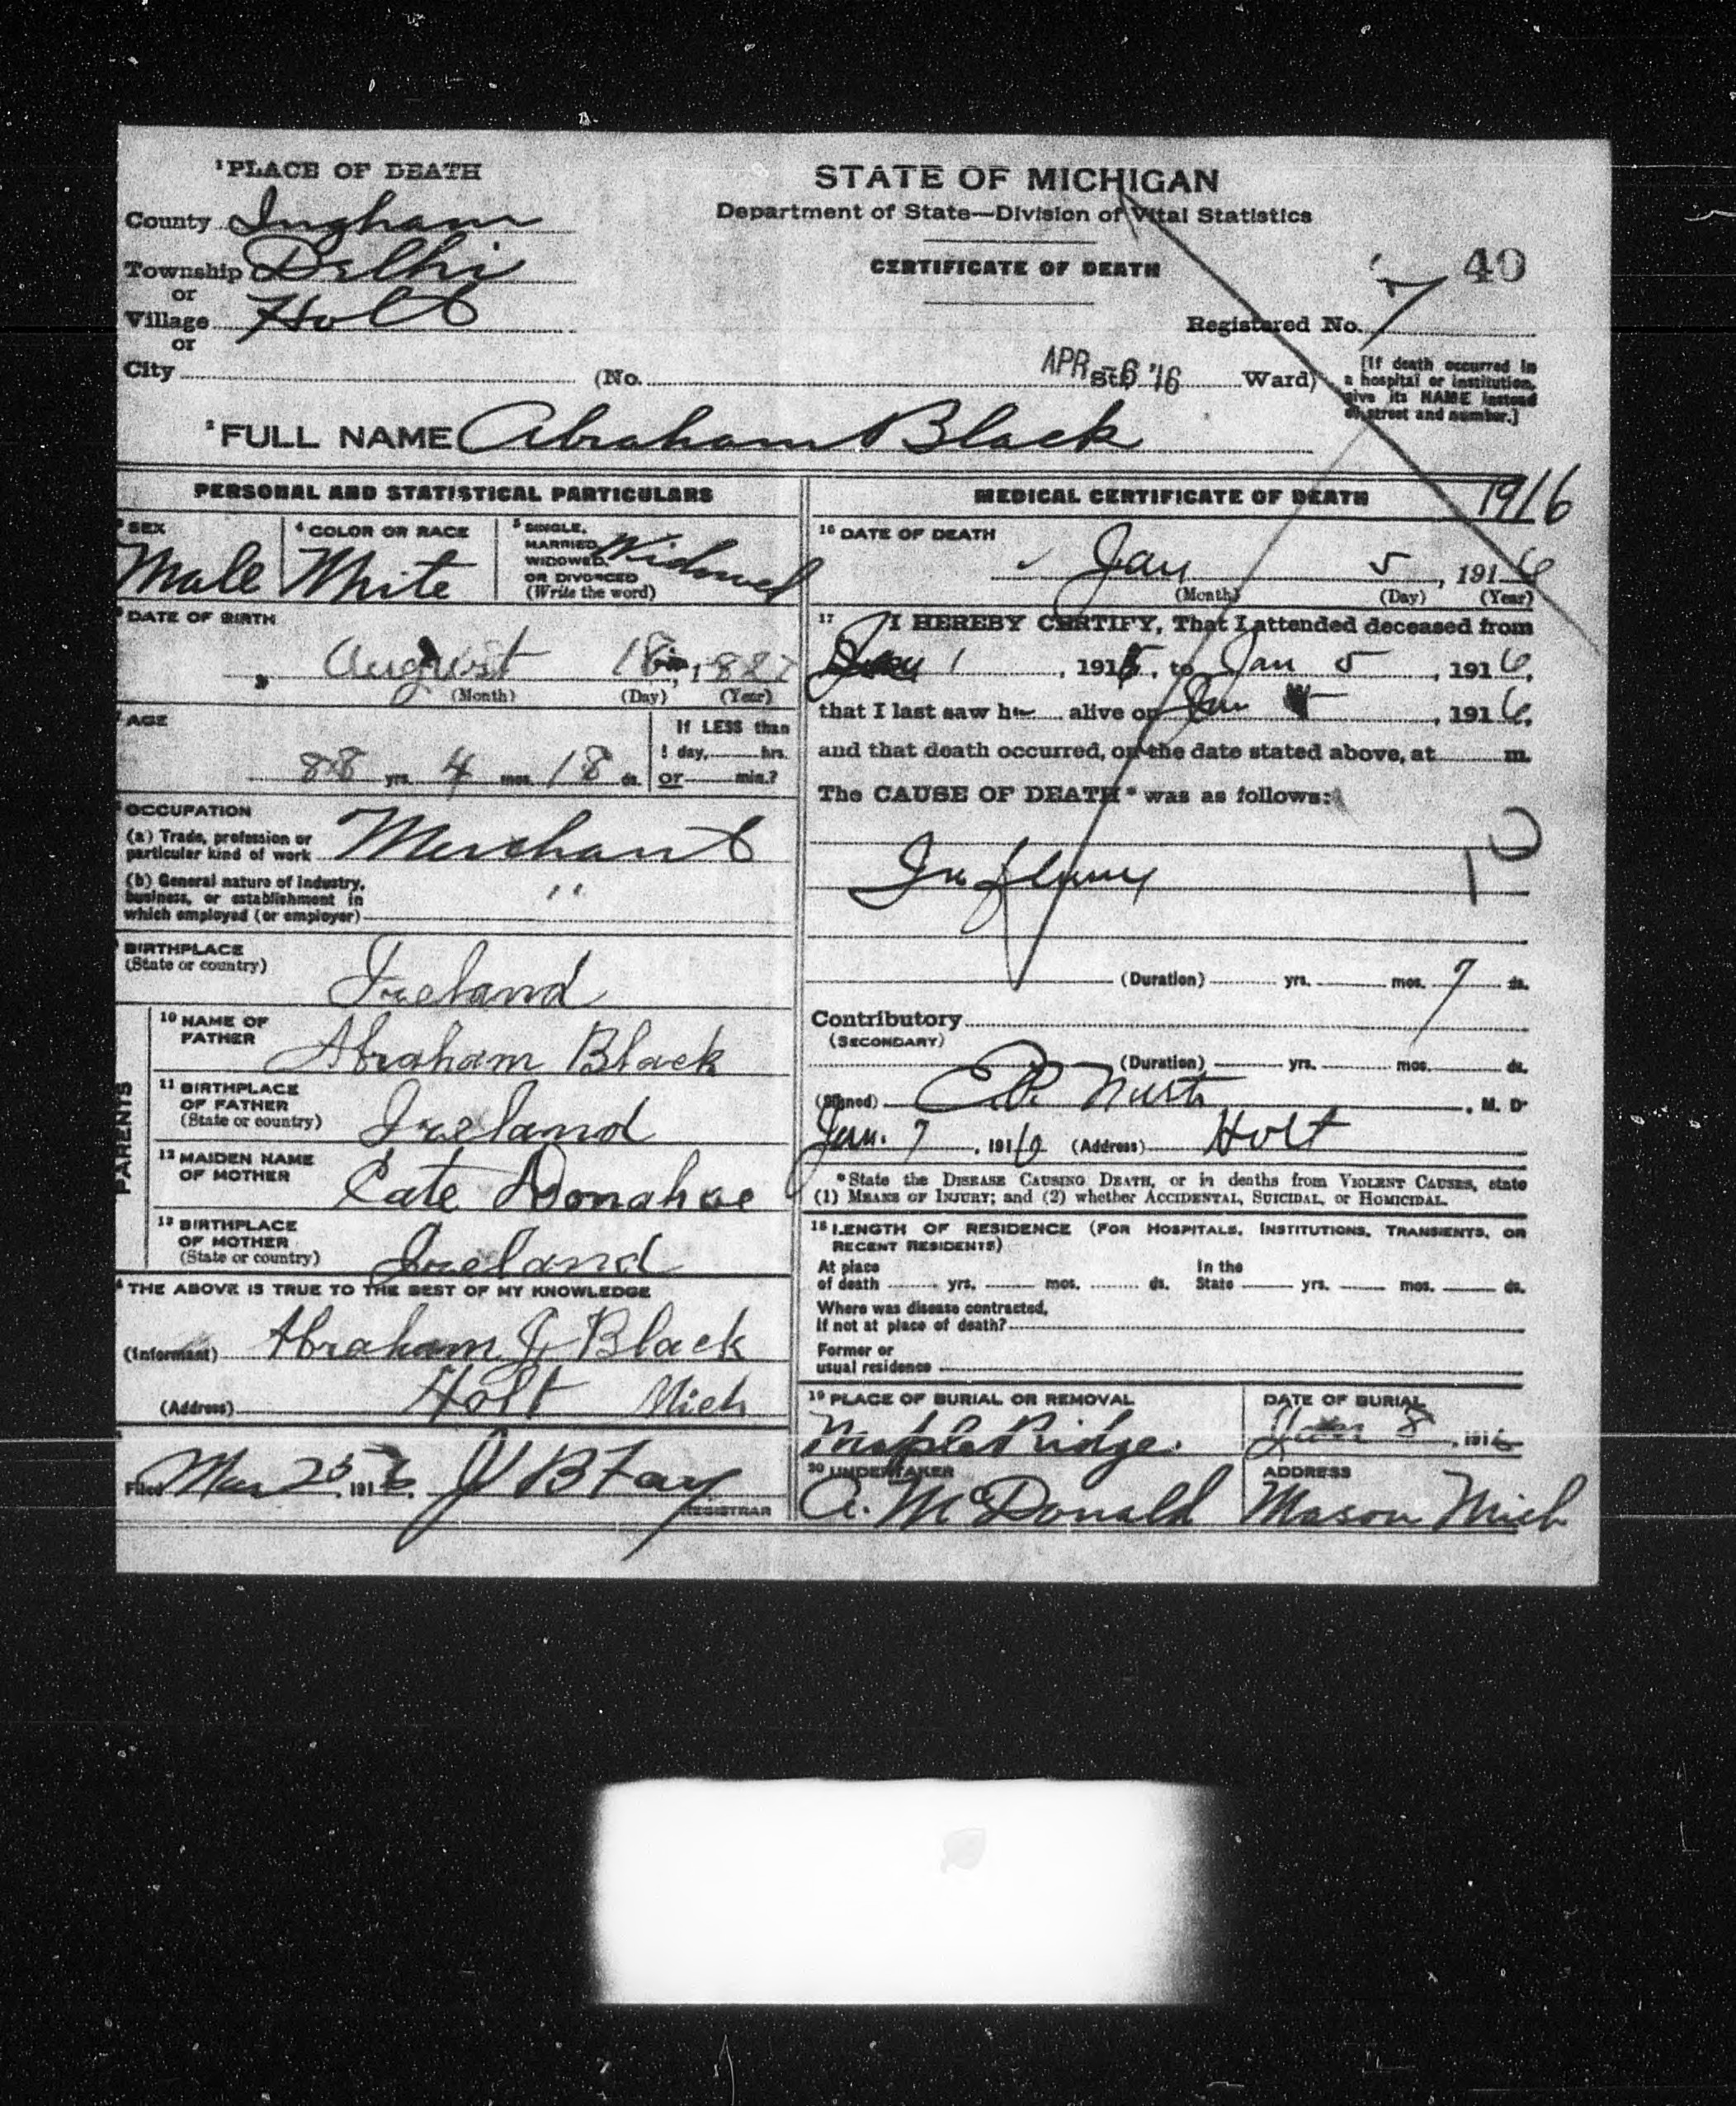 1 PLACE OF DEATH
STATE OF MICHIGAN
Department of State—Division of Vital Statistics
CERTIFICATE OF DEATH
County Ingham
Township Delhi
or
Village Holt
or
City (No. St. Ward)
APR -6 '16
40
Registered No. 7
[If death occurred in
a hospital or institution,
give its NAME instead
of street and number.]
2 FULL NAME Abraham Black
PERSONAL AND STATISTICAL PARTICULARS
3 SEX
Male
4 COLOR OR RACE
White
5 SINGLE,
MARRIED,
WIDOWED,
OR DIVORCED
(Write the word)
Widowed
DATE OF BIRTH
August 18, 1827
(Month) (Day) (Year)
AGE
88 yrs. 4 mos. 18 ds.
If LESS than
1 day, hrs.
or min.?
OCCUPATION
(a) Trade, profession or
particular kind of work Merchant
(b) General nature of industry,
business, or establishment in
which employed (or employer) "
BIRTHPLACE
(State or country)
Ireland
PARENTS
10 NAME OF
FATHER
Abraham Black
11 BIRTHPLACE
OF FATHER
(State or country)
Ireland
12 MAIDEN NAME
OF MOTHER
Cate Donahoe
13 BIRTHPLACE
OF MOTHER
(State or country)
Ireland
THE ABOVE IS TRUE TO THE BEST OF MY KNOWLEDGE
(Informant) Abraham J. Black
(Address) Holt Mich
Filed Mar 25, 1916 J B Fay
REGISTRAR
MEDICAL CERTIFICATE OF DEATH
1916
16 DATE OF DEATH
Jan 5, 1916
(Month) (Day) (Year)
17 I HEREBY CERTIFY, That I attended deceased from
1, 191 , to Jan 5, 1916,
that I last saw h alive on Jan , 1916,
and that death occurred, on the date stated above, at m.
The CAUSE OF DEATH* was as follows:
10
(Duration) yrs. mos. 7 ds.
Contributory
(SECONDARY)
(Duration) yrs. mos. ds.
(Signed) , M. D.
Jan. 7, 1916 (Address) Holt
*State the DISEASE CAUSING DEATH, or in deaths from VIOLENT CAUSES, state
(1) MEANS OF INJURY; and (2) whether ACCIDENTAL, SUICIDAL, or HOMICIDAL.
18 LENGTH OF RESIDENCE (FOR HOSPITALS, INSTITUTIONS, TRANSIENTS, OR
RECENT RESIDENTS)
At place
of death yrs. mos. ds.
In the
State yrs. mos. ds.
Where was disease contracted,
if not at place of death?
Former or
usual residence
19 PLACE OF BURIAL OR REMOVAL
Maple Ridge.
DATE OF BURIAL
Jan 8, 1916
20 UNDERTAKER
A. McDonald
ADDRESS
Mason Mich